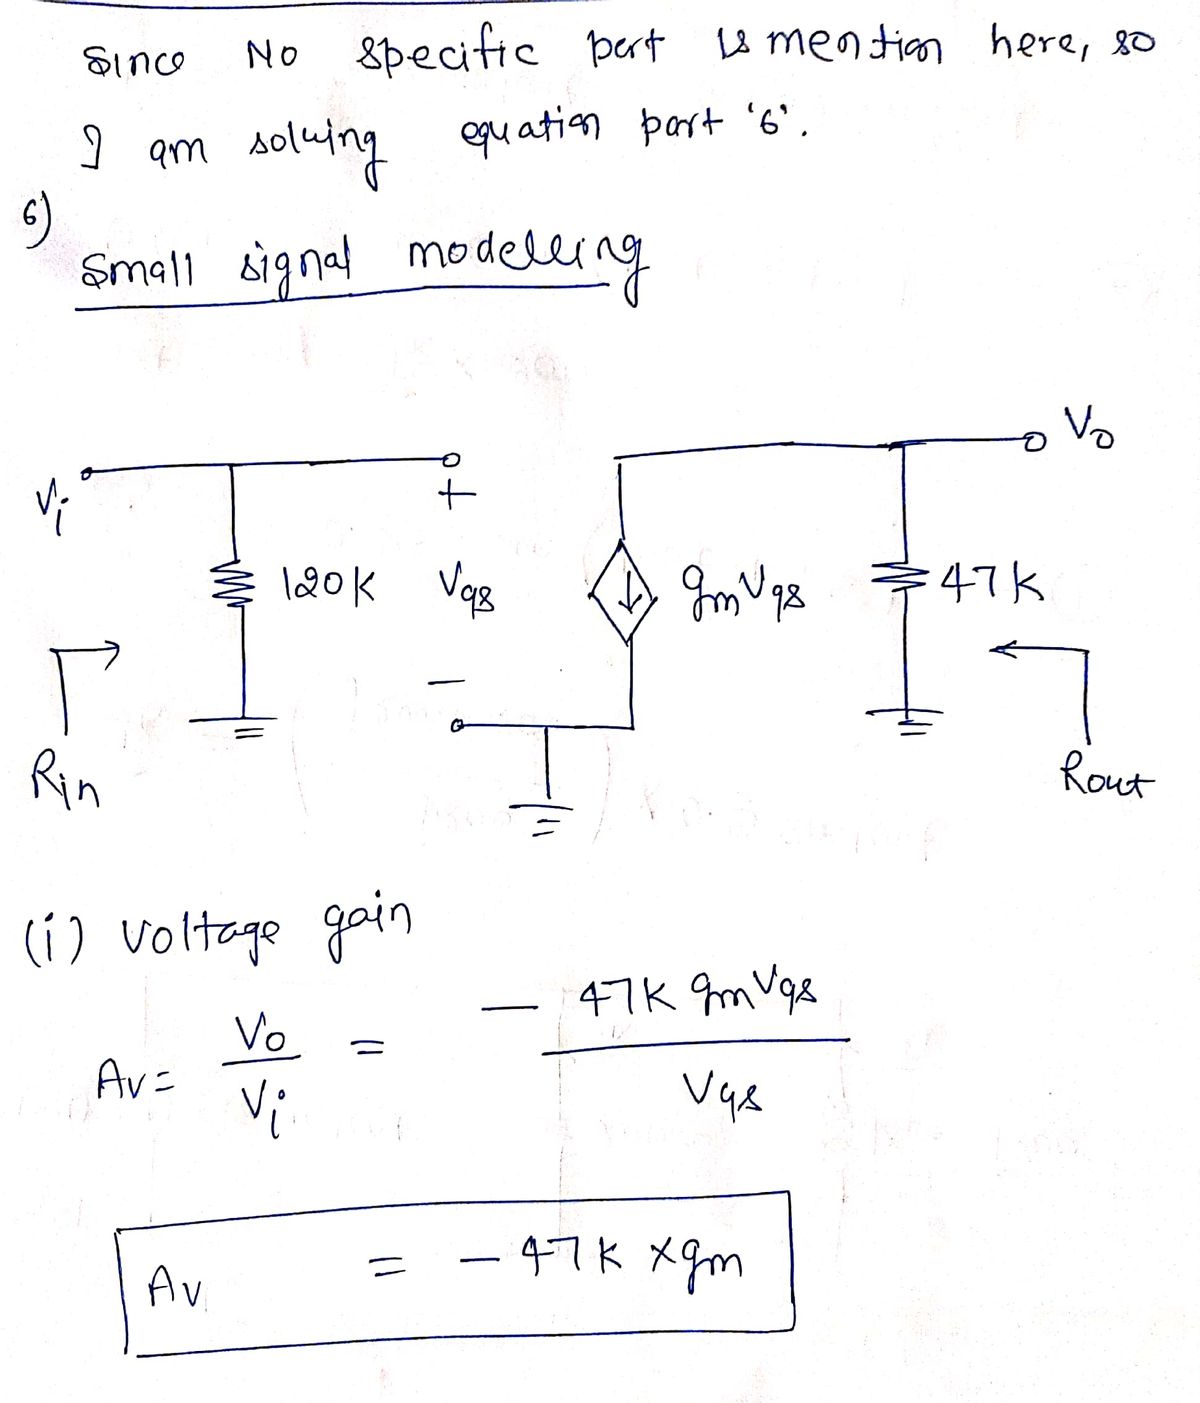 Since No specific part is mention here, so
I am solving equation part '6'.
6)
Small signal modelling
Vi
+
120K Vgs gmVgs 47K
Vo
-
Rin
Rout
(i) voltage gain
Av = Vo / Vi = - 47K gmVgs / Vgs
Av = - 47K × gm